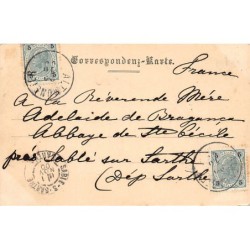 Correspondenz-Karte.
France
A la Révérende Mère
Adelaide de Bragança
Abbaye de Ste Cécile
près Sablé sur Sarthe
(Dép Sarthe)